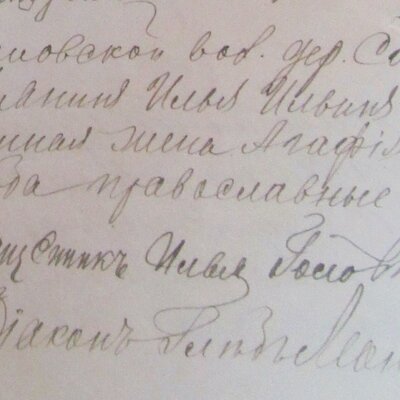 ловской вол. дер. С
янинъ Илья Ильинъ
нная жена Агафія
ба православные
щенникъ Илья Голов
Діаконъ Глѣбъ